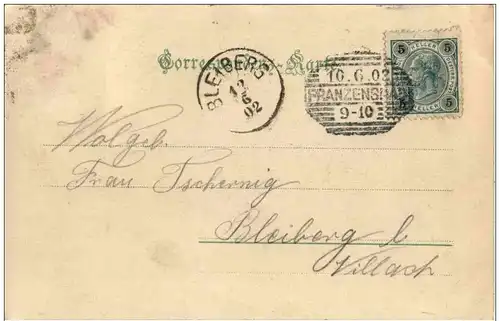 Correspondenz-Karte
BLEIBERG
12
6
02
10.6.02
FRANZENSBAD
9-10
5 HELLER 5
5 HELLER 5
Wolgeb.
Frau Tschernig
Bleiberg b
Villach